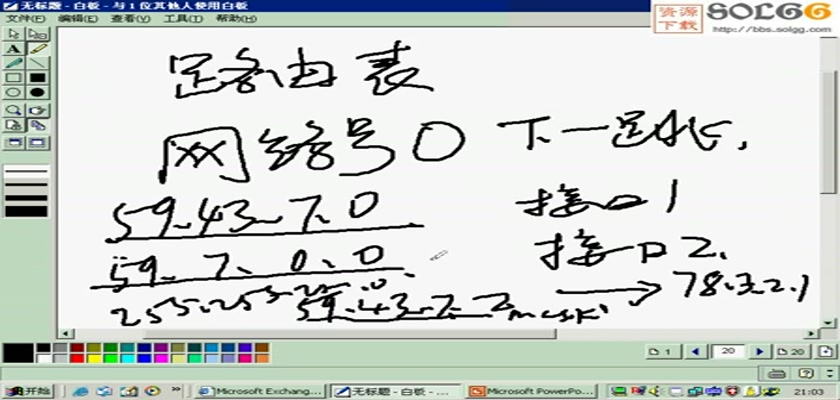 无标题 - 白板 - 与 1 位其他人使用白板
文件(F) 编辑(E) 查看(V) 工具(T) 帮助(H)
资源下载 SOLGG
http://bbs.solgg.com
A
路由表
网络号 0 下一跳
59.43.7.0 接口1
59.7.0.0 接口2
255.255.255.0 59.43.7.2 mask 78.3.2.1
1 20 20
开始 Microsoft Exchang... 无标题 - 白板 - ... Microsoft PowerPo... 21:03